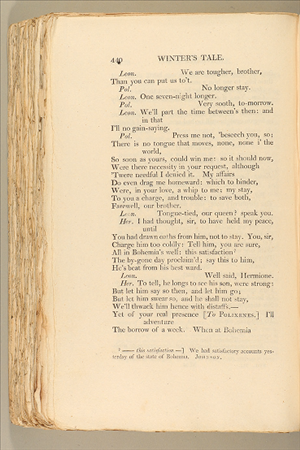 440 WINTER'S TALE.
Leon. We are tougher, brother,
Than you can put us to't.
Pol. No longer stay.
Leon. One seven-night longer.
Pol. Very sooth, to-morrow.
Leon. We'll part the time between's then: and
in that
I'll no gain-saying.
Pol. Press me not, 'beseech you, so;
There is no tongue that moves, none, none i' the
world,
So soon as yours, could win me: so it should now,
Were there necessity in your request, although
'Twere needful I denied it. My affairs
Do even drag me homeward: which to hinder,
Were, in your love, a whip to me; my stay,
To you a charge, and trouble: to save both,
Farewell, our brother.
Leon. Tongue-tied, our queen? speak you.
Her. I had thought, sir, to have held my peace,
until
You had drawn oaths from him, not to stay. You, sir,
Charge him too coldly: Tell him, you are sure,
All in Bohemia's well: this satisfaction
The by-gone day proclaim'd; say this to him,
He's beat from his best ward.
Leon. Well said, Hermione.
Her. To tell, he longs to see his son, were strong:
But let him say so then, and let him go;
But let him swear so, and he shall not stay,
We'll thwack him hence with distaffs.—
Yet of your real presence [To POLIXENES.] I'll
adventure
The borrow of a week. When at Bohemia
—— this satisfaction —] We had satisfactory accounts yes-
terday of the state of Bohemia. JOHNSON.